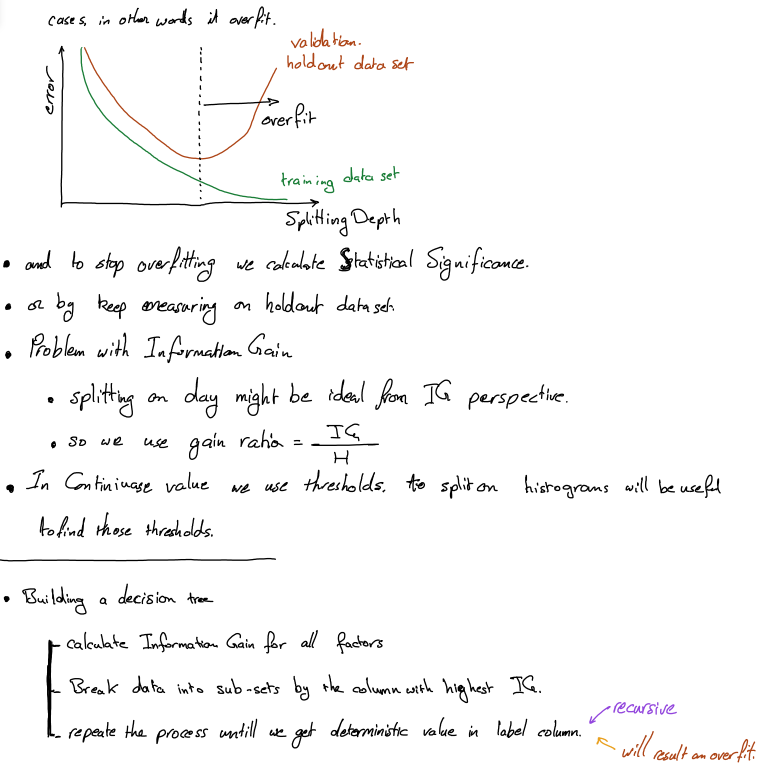 cases, in other words it overfit.
validation.
holdout data set
error
overfit
training data set
Splitting Depth
• and to stop overfitting we calculate Statistical Significance.
• or by keep measuring on holdout data set.
• Problem with Information Gain
• splitting on day might be ideal from IG perspective.
• so we use gain ratio = IG / H
• In Continiuase value we use thresholds, to split on histograms will be useful
to find those thresholds.
• Building a decision tree
- calculate Information Gain for all factors
- Break data into sub-sets by the column with highest IG.
recursive
- repeate the process untill we get deterministic value in label column.
will result an overfit.